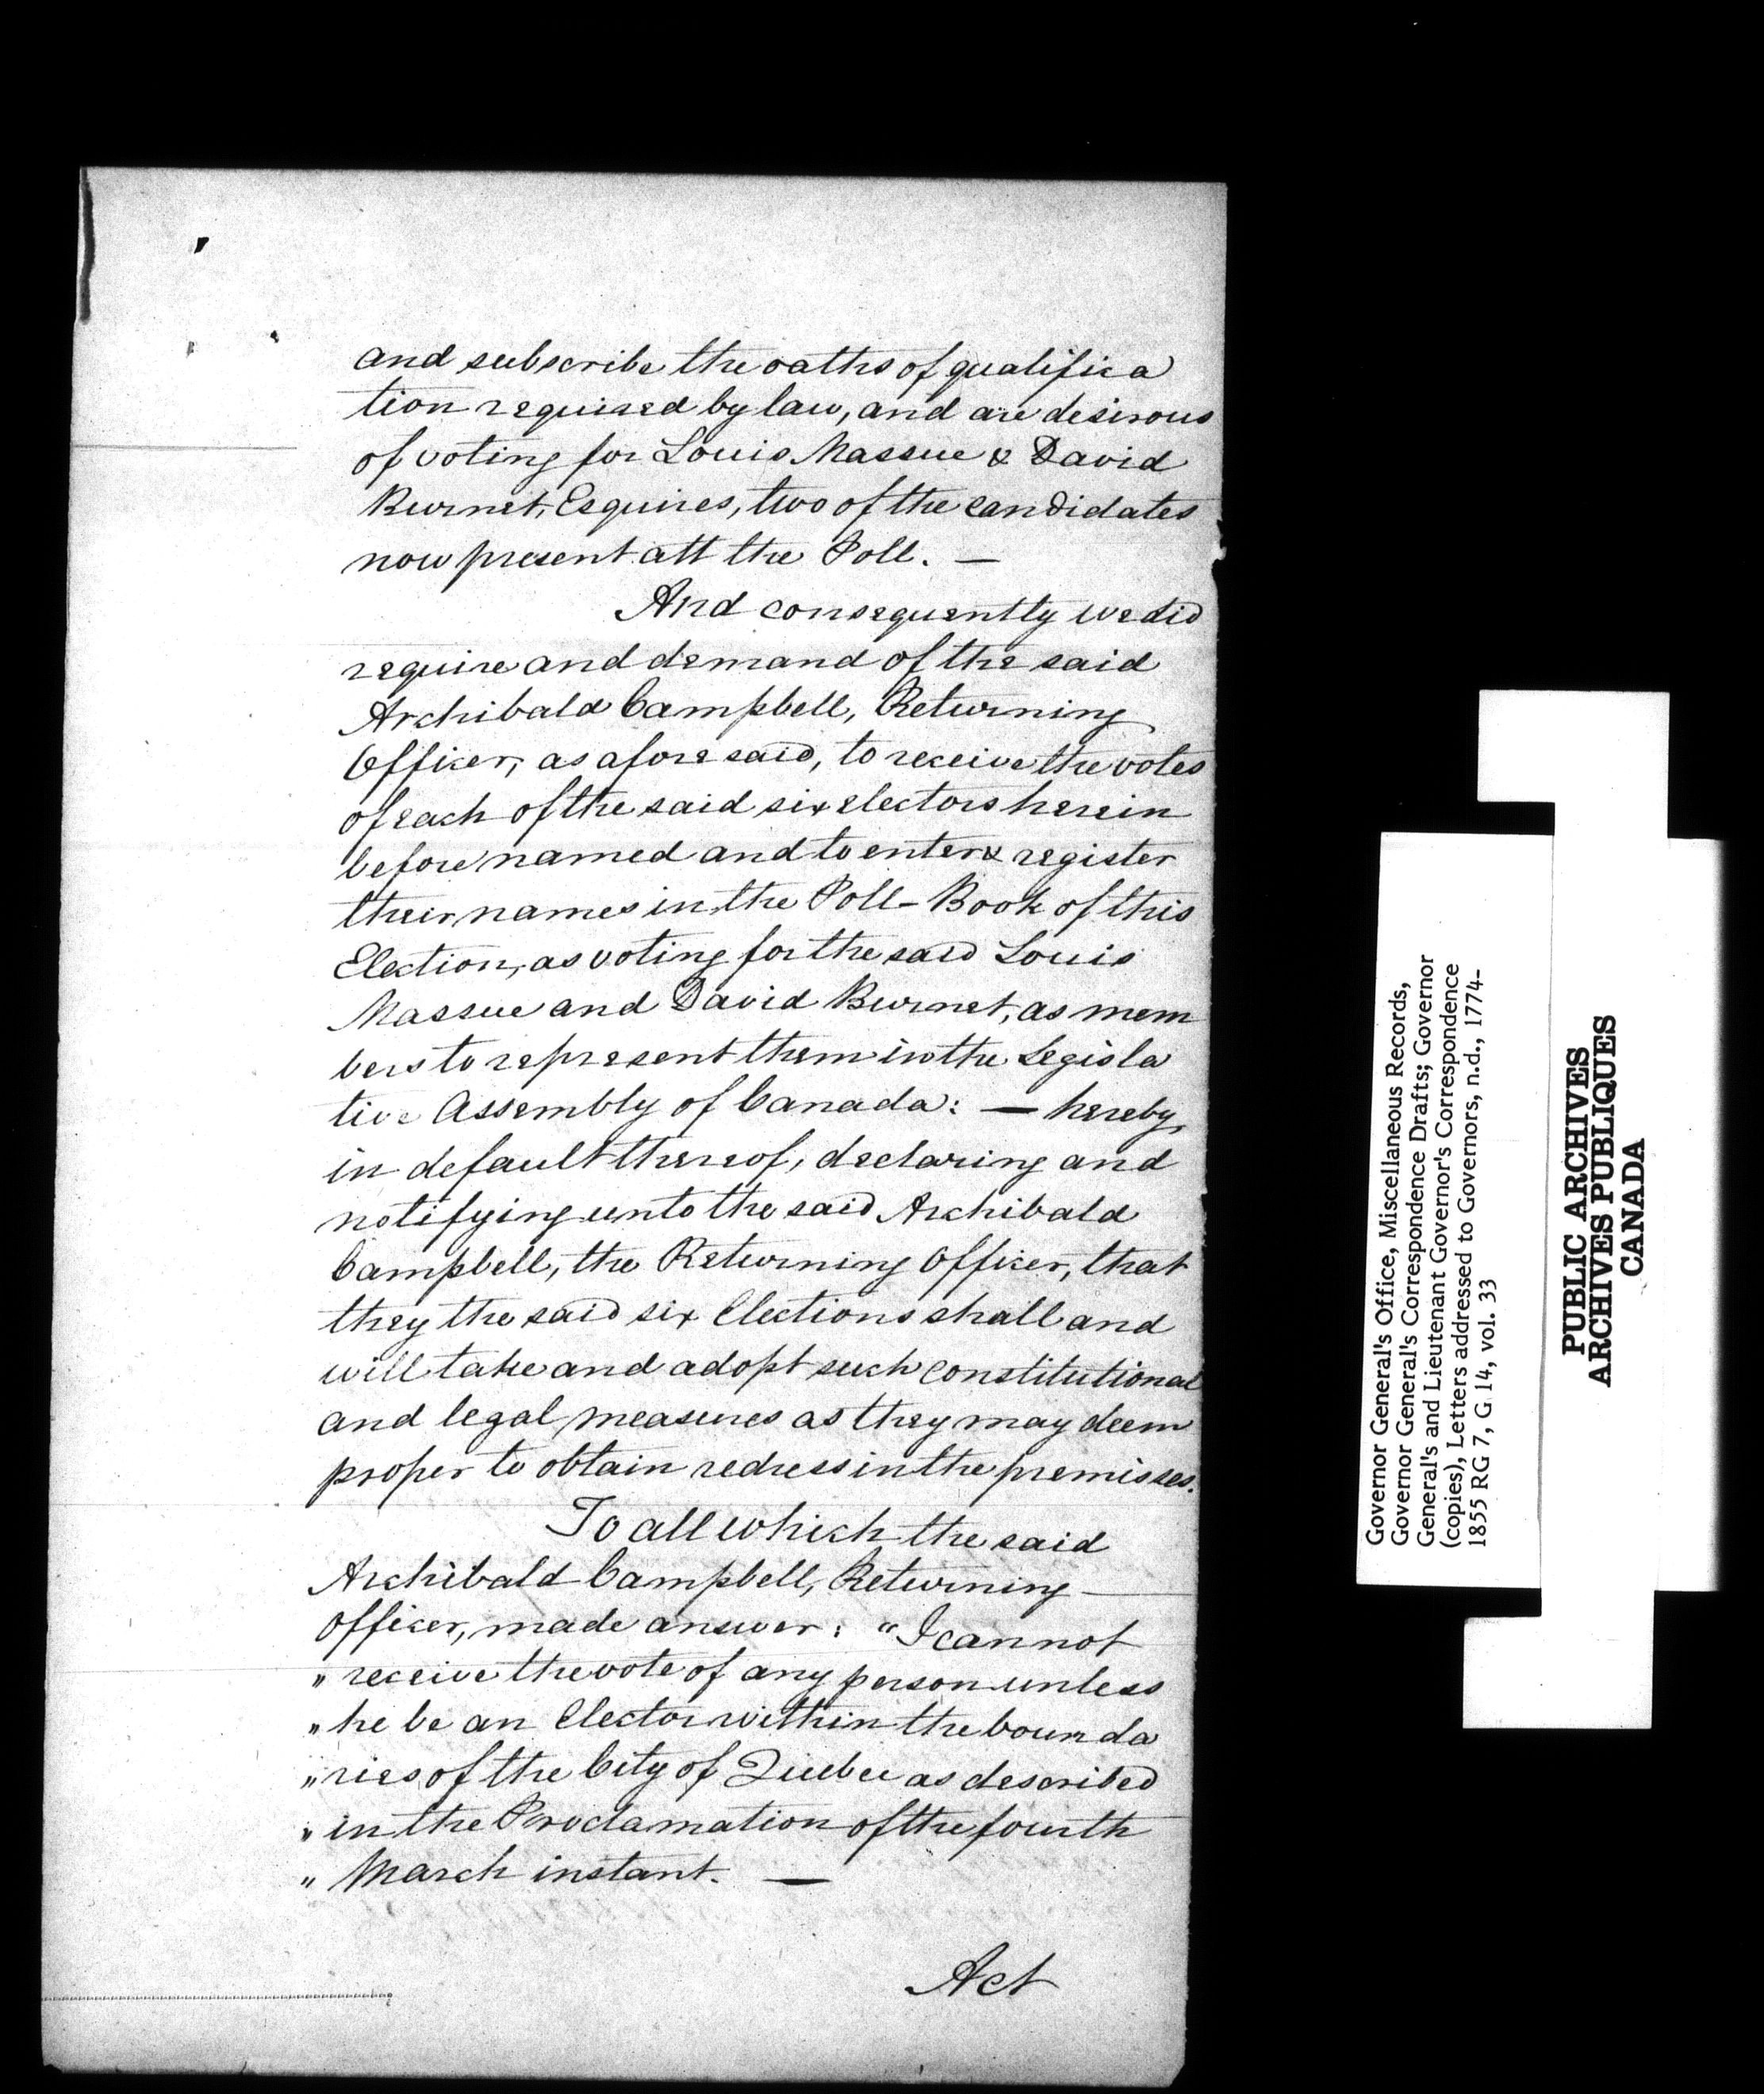 and subscribe the oaths of qualifica
tion required by law, and are desirous
of voting for Louis Massue & David
Burnet, Esquires, two of the candidates
now present att the Poll. —
And consequently we did
require and demand of the said
Archibald Campbell, Returning
Officer, as afore said, to receive the votes
of each of the said six electors herein
before named and to enter & register
their names in the Poll-Book of this
Election, as voting for the said Louis
Massue and David Burnet, as mem
bers to represent them in the Legisla
tive Assembly of Canada: — hereby,
in default thereof, declaring and
notifying unto the said Archibald
Campbell, the Returning Officer, that
they the said six Elections shall and
will take and adopt such constitutional
and legal measures as they may deem
proper to obtain redress in the premisses.
To all which the said
Archibald Campbell, Returning
Officer, made answer: "I cannot
" receive the vote of any person unless
" he be an Elector within the bounda
" ries of the City of Quebec as described
" in the Proclamation of the fourth
" March instant. —
Act
Governor General's Office, Miscellaneous Records,
Governor General's Correspondence Drafts; Governor
General's and Lieutenant Governor's Correspondence
(copies), Letters addressed to Governors, n.d., 1774-
1855 RG 7, G 14, vol. 33
PUBLIC ARCHIVES
ARCHIVES PUBLIQUES
CANADA